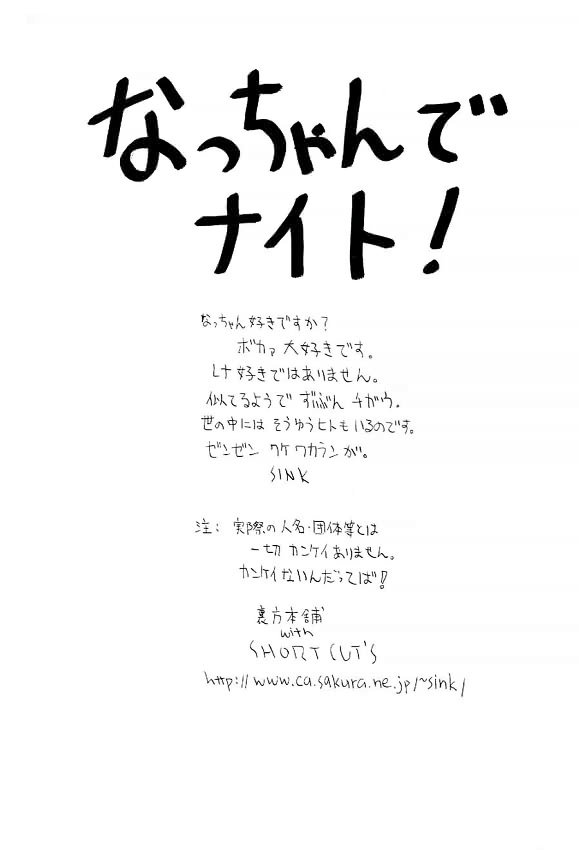 なっちゃんで
ナイト!
なっちゃん好きですか?
ボカァ大好きです。
Lナ好きではありません。
似てるようで ずいぶん チガウ.
世の中には そうゆうヒトもいるのです。
ゼンゼン ワケ ワカランが。
SINK
注: 実際の人名・団体等とは
一切 カンケイありません。
カンケイないんだってば!
裏方本舗
with
SHORT CUT'S
http://www.ca.sakura.ne.jp/~sink/